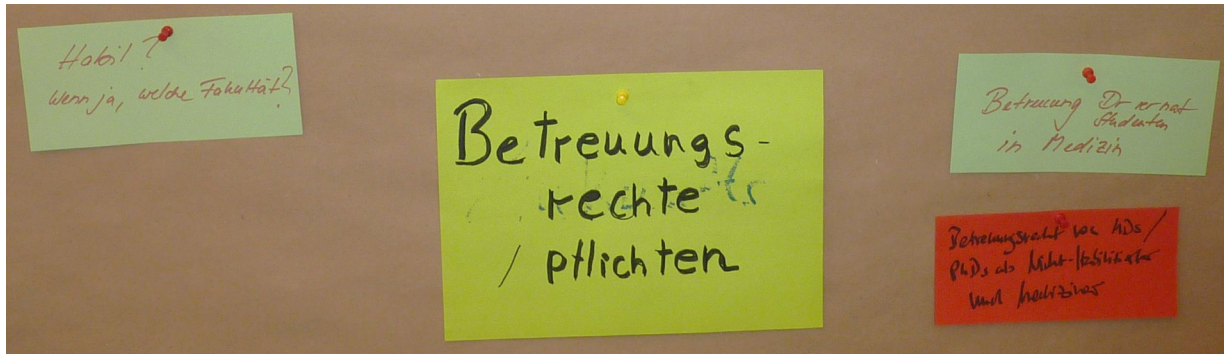 Habil?
Wenn ja, welche Fakultät?
Betreuungs-
rechte
/ pflichten
Betreuung Dr rer nat
Studenten
in Medizin
Betreuungsrecht von MDs/
PhDs als Nicht-Habilitierter
und Mediziner